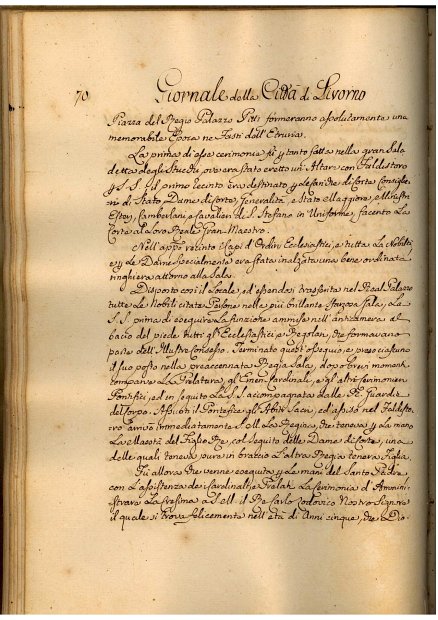 70 Giornale della Città di Livorno
Piazza del Regio Palazzo Pitti formeranno assolutamente una
memorabile Epoca ne Fasti dell'Etruria.
La prima di esse cerimonie fù p tanto fatta nella gran Sala
detta degli Stucchi, ove era stato eretto un Altare con Faldistoro
p S. S. Il primo recinto era destinato p le Cariche di Corte, Consiglie-
ri di Stato, Dame di Corte, Generalità, e Stato Maggiore, e Ministri
Esteri, Camberlani, e Cavalieri di S. Stefano in Uniforme, facendo La
Corte al Loro Reale Gran-Maestro.
Nell'app recinto i Capi d'Ordini Ecclesiastici, e tutta La Nobiltà
e p Le Dame specialmente era stata inalzata una bene ordinata
ringhiera attorno alla Sala.
Disposto così il Locale, ed essendosi trasferite nel Real Palazzo
tutte Le Nobili citate Persone nella più brillante Sala, La
S. S. prima di eseguire La funzione ammise nell'anticamera al
bacio del piede tutti gli Ecclesiastici e Regolari, che formavano
parte dell'Illustre Consesso. Terminato quest'ossequio, e preso ciascuno
il suo posto nella preaccennata Regia Sala, dopo brevi momenti
comparve La Prelatura, gli Emin. Cardinali, e gli altri Cerimonieri
Pontifici, ed in seguito La S. S. accompagnata dalle Guardie
del Corpo. Assunti il Pontefice gli Abiti Sacri, ed assiso nel Faldisto-
ro arrivò immediatamente S. M. La Regina, che teneva p La mano
La Maestà del Figlio Re, col Seguito delle Dame di Corte, una
delle quali teneva pure in braccio L'altra Regia tenera Figlia.
Fù allora che venne eseguita p Le mani del Santo Padre
con L'assistenza de Cardinali, e Prelati La Cerimonia d'Ammini-
strare La Cresima a S. M. il Re Carlo Lodovico Nostro Signore
il quale si trova felicemente nell'età di Anni cinque, che a Dio-